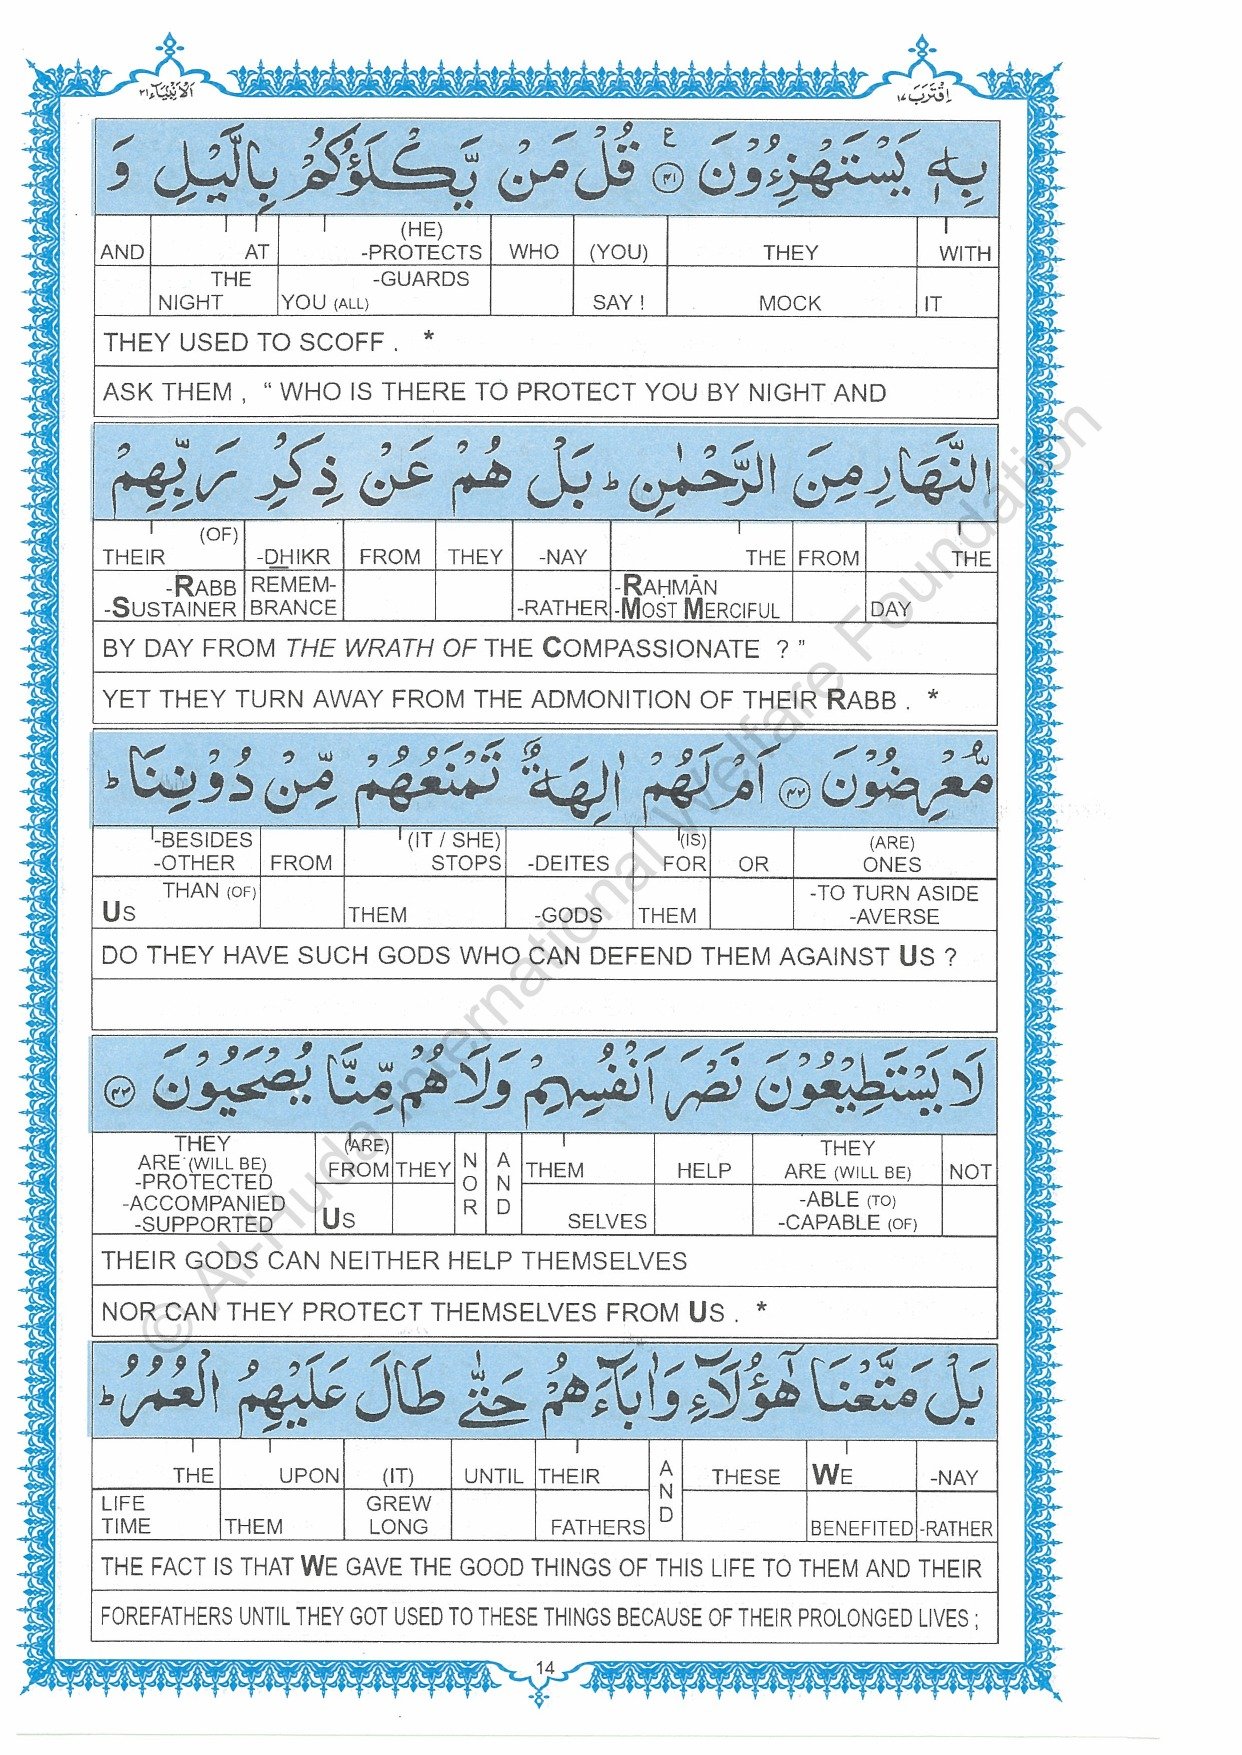 الأنبياء ٢١
اقترب ١٧
بِهٖ يَسْتَهْزِءُوْنَ ۴۱ ع قُلْ مَنْ يَّكْلَؤُكُمْ بِالَّيْلِ وَ
AND AT (HE) -PROTECTS WHO (YOU) THEY WITH
THE NIGHT YOU (ALL) -GUARDS SAY ! MOCK IT
THEY USED TO SCOFF . *
ASK THEM , “ WHO IS THERE TO PROTECT YOU BY NIGHT AND
النَّهَارِ مِنَ الرَّحْمٰنِ ؕ بَلْ هُمْ عَنْ ذِكْرِ رَبِّهِمْ
THEIR (OF) -DHIKR FROM THEY -NAY THE FROM THE
-RABB -SUSTAINER REMEM-BRANCE -RATHER -RAHMĀN -MOST MERCIFUL DAY
BY DAY FROM THE WRATH OF THE COMPASSIONATE ? ”
YET THEY TURN AWAY FROM THE ADMONITION OF THEIR RABB . *
مُّعْرِضُوْنَ ۴۲ اَمْ لَهُمْ اٰلِهَةٌ تَمْنَعُهُمْ مِّنْ دُوْنِنَا ؕ
-BESIDES -OTHER FROM (IT / SHE) STOPS -DEITES (IS) FOR OR (ARE) ONES
THAN (OF) US THEM -GODS THEM -TO TURN ASIDE -AVERSE
DO THEY HAVE SUCH GODS WHO CAN DEFEND THEM AGAINST US ?
لَا يَسْتَطِيْعُوْنَ نَصْرَ اَنْفُسِهِمْ وَلَا هُمْ مِّنَّا يُصْحَبُوْنَ ۴۳
THEY ARE (WILL BE) -PROTECTED -ACCOMPANIED -SUPPORTED (ARE) FROM THEY NOR AND THEM HELP THEY ARE (WILL BE) NOT
US SELVES -ABLE (TO) -CAPABLE (OF)
THEIR GODS CAN NEITHER HELP THEMSELVES
NOR CAN THEY PROTECT THEMSELVES FROM US . *
بَلْ مَتَّعْنَا هٰٓؤُلَآءِ وَاٰبَآءَهُمْ حَتّٰى طَالَ عَلَيْهِمُ الْعُمُرُ ؕ
THE UPON (IT) UNTIL THEIR AND THESE WE -NAY
LIFE TIME THEM GREW LONG FATHERS BENEFITED -RATHER
THE FACT IS THAT WE GAVE THE GOOD THINGS OF THIS LIFE TO THEM AND THEIR
FOREFATHERS UNTIL THEY GOT USED TO THESE THINGS BECAUSE OF THEIR PROLONGED LIVES ;
14
© Al-Huda International Welfare Foundation